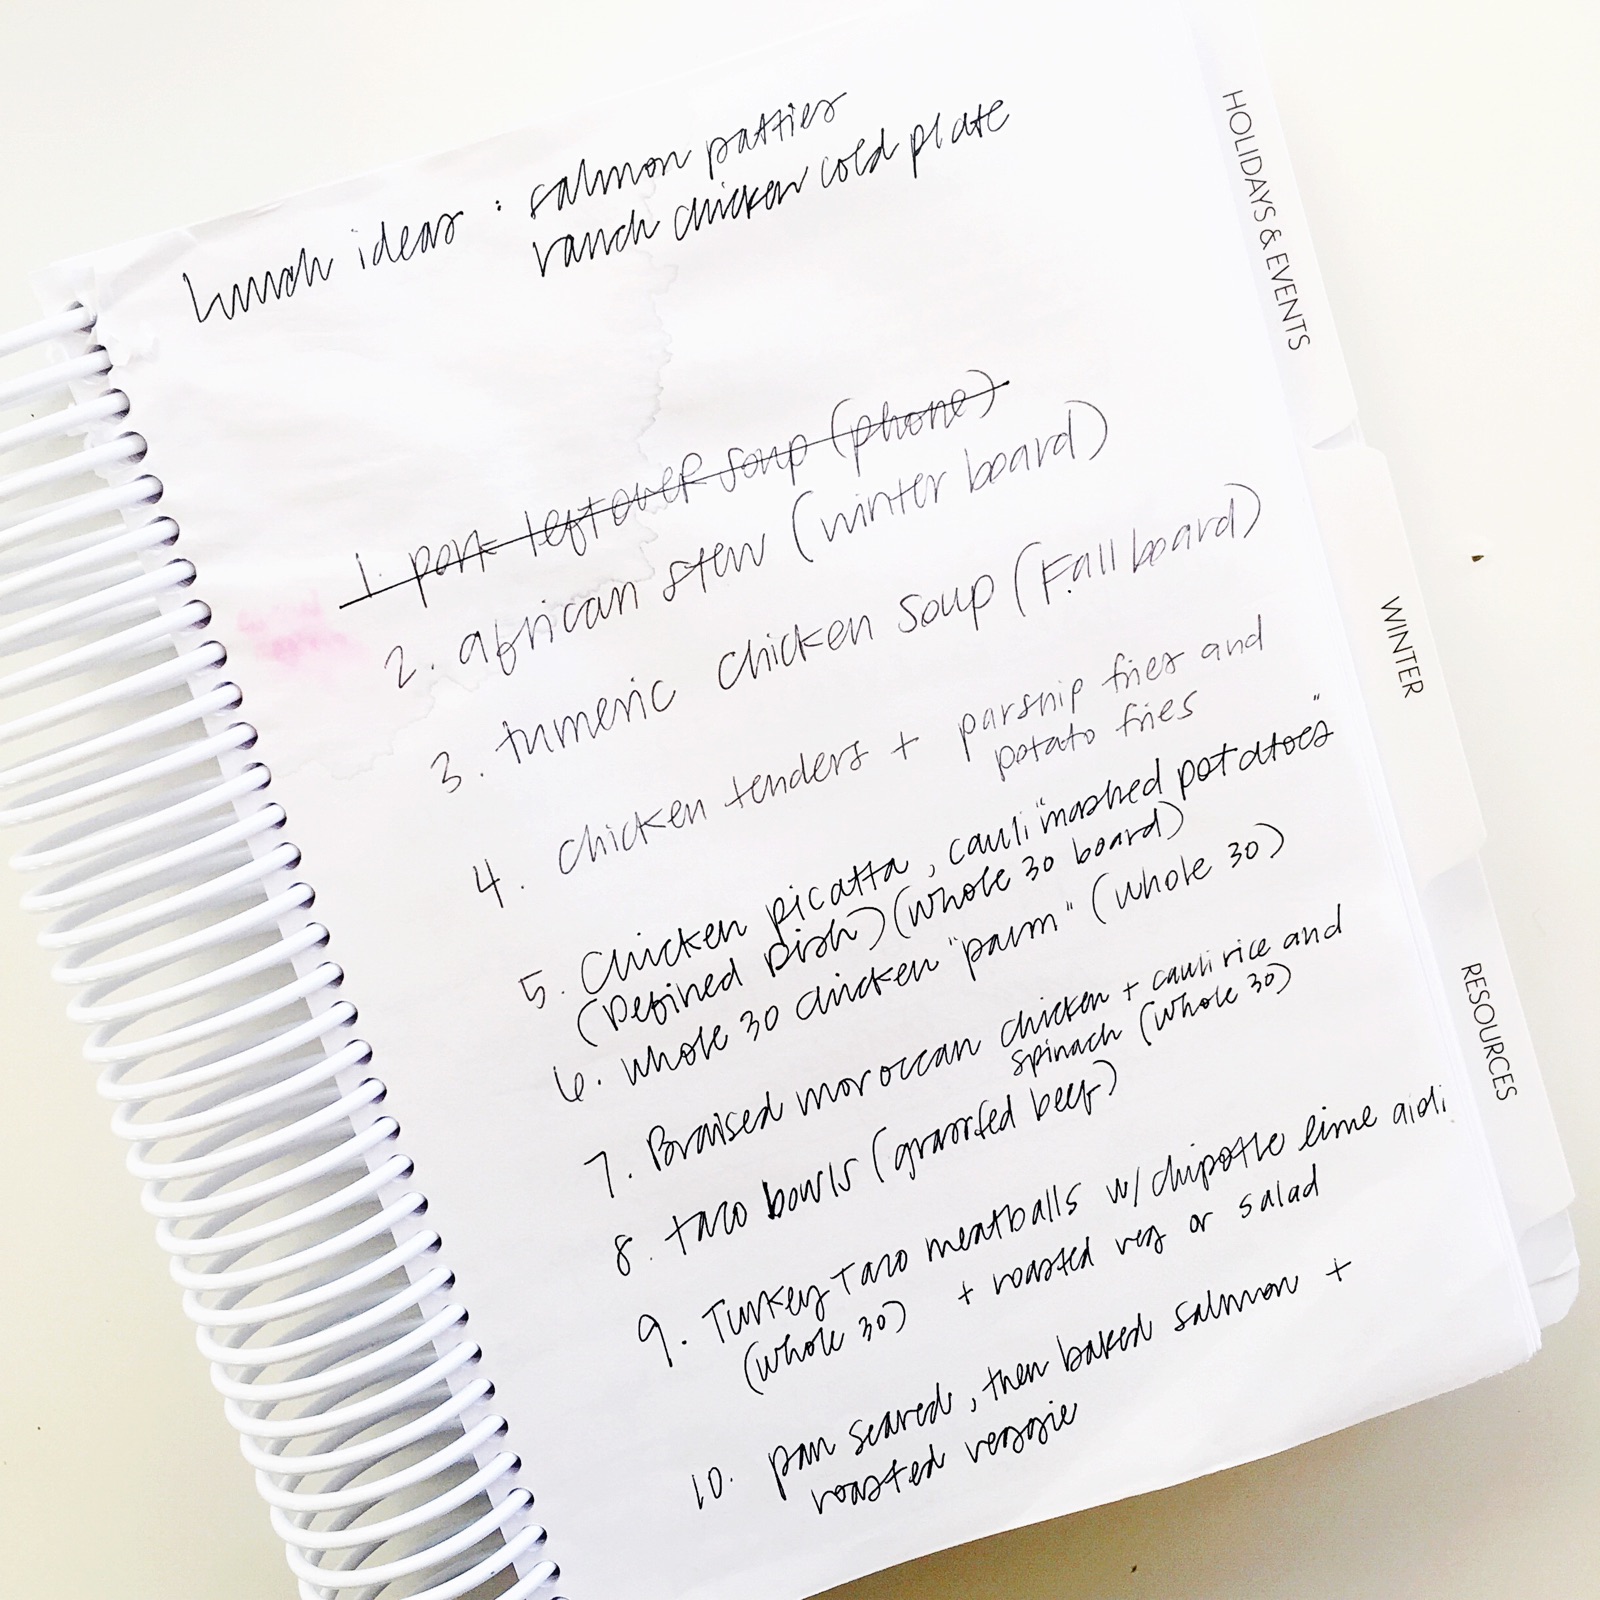 lunch ideas : salmon patties
ranch chicken cold plate
1. pork leftover soup (phone)
2. african stew (winter board)
3. tumeric chicken soup (Fall board)
4. chicken tenders + parsnip fries and
potato fries
5. chicken picatta, cauli "mashed potatoes"
(Defined Dish) (whole 30 board)
6. whole 30 chicken "parm" (whole 30)
7. Braised moroccan chicken + cauli rice and
spinach (whole 30)
8. taco bowls (grassfed beef)
9. Turkey Taco meatballs w/ chipotle lime aioli
(whole 30) + roasted veg or salad
10. pan seared, then baked salmon +
roasted veggie
HOLIDAYS & EVENTS
WINTER
RESOURCES